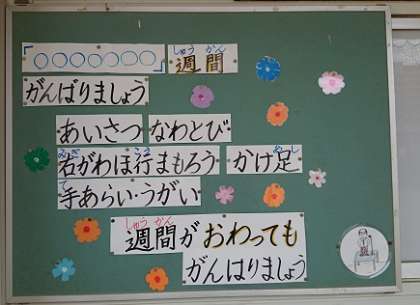 ○○○○○○○ 週間
がんばりましょう
あいさつ なわとび
右がわほ行まもろう かけ足
手あらい・うがい
週間がおわっても
がんばりましょう